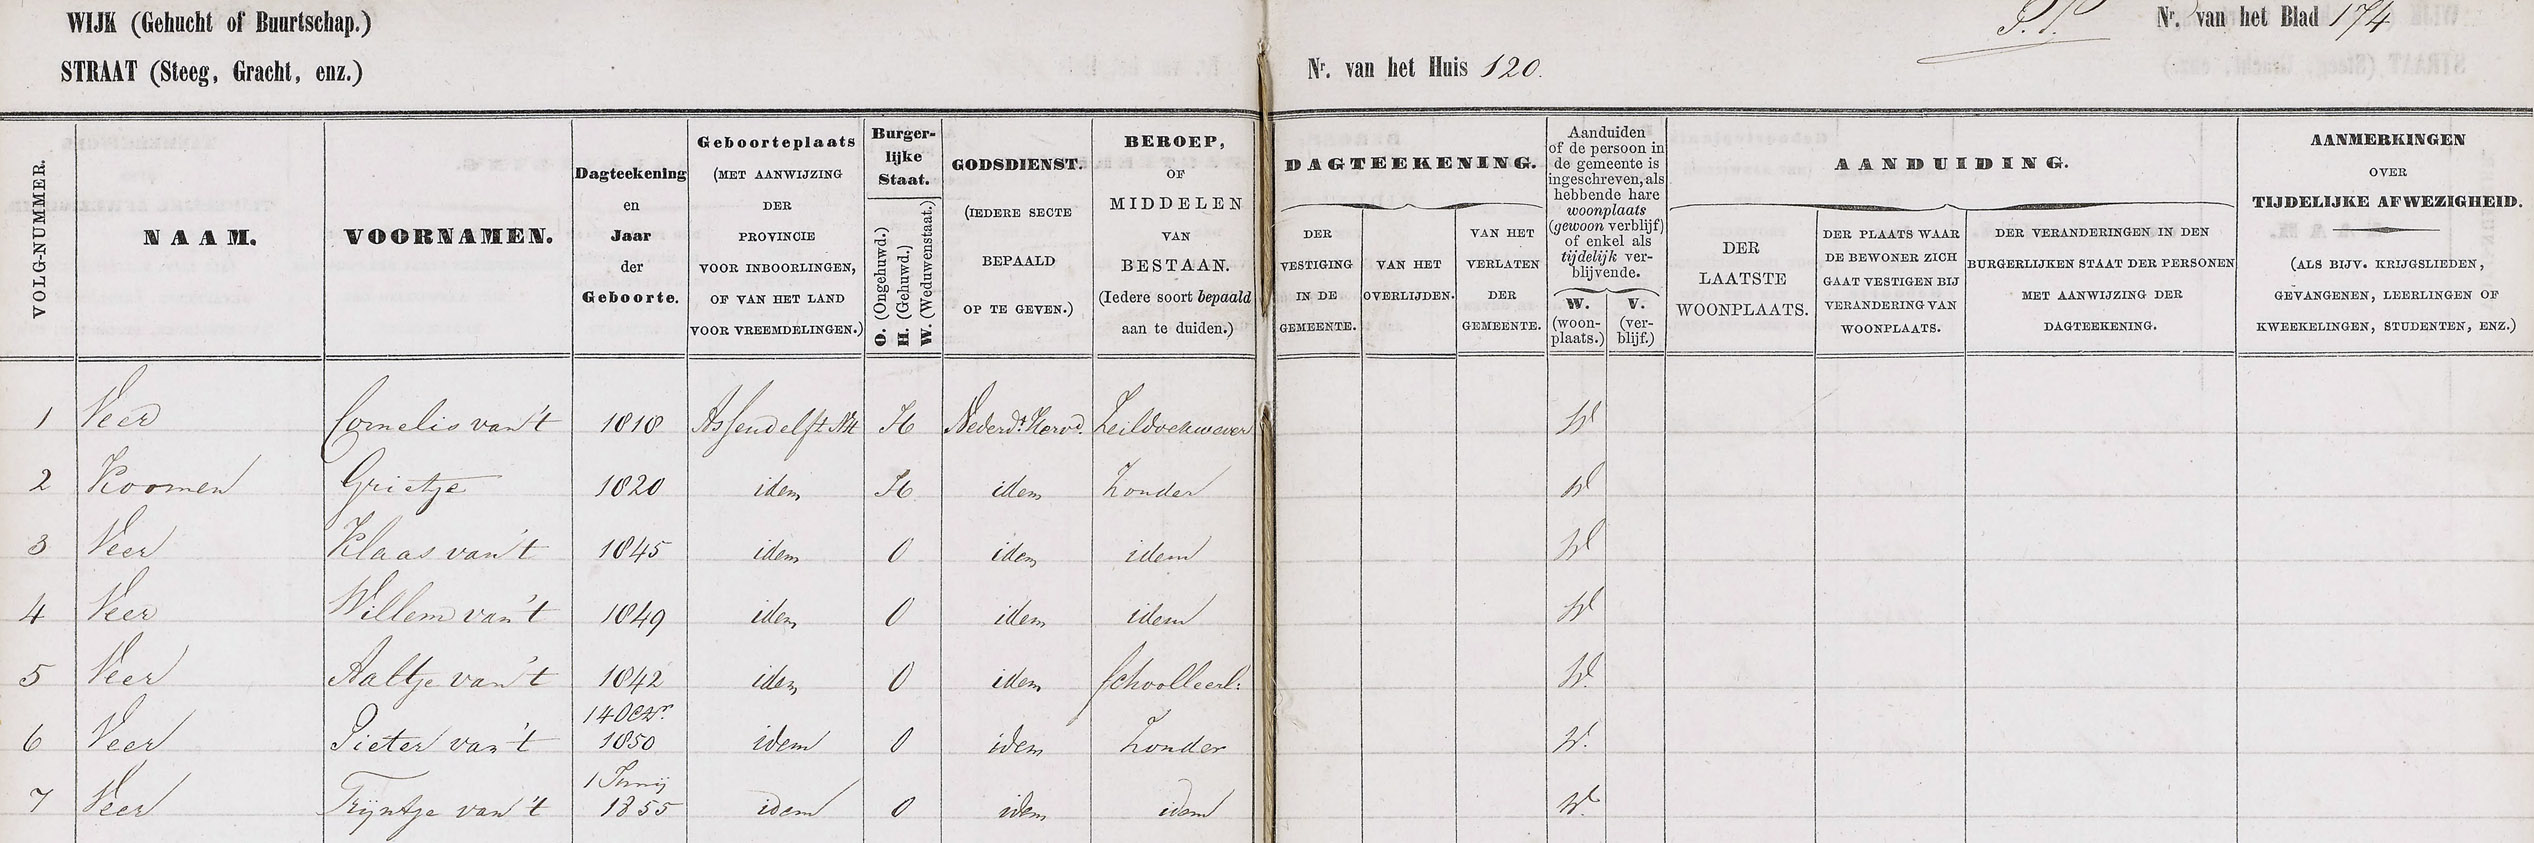 WIJK (Gehucht of Buurtschap.)
STRAAT (Steeg, Gracht, enz.)
Nr. van het Huis 120.
Nr. van het Blad 174
VOLG-NUMMER.
NAAM.
VOORNAMEN.
Dagteekening
en
Jaar
der
Geboorte.
Geboorteplaats
(MET AANWIJZING
DER
PROVINCIE
VOOR INBOORLINGEN,
OF VAN HET LAND
VOOR VREEMDELINGEN.)
Burger-
lijke
Staat.
O. (Ongehuwd.)
H. (Gehuwd,)
W. (Weduwenstaat.)
GODSDIENST.
(IEDERE SECTE
BEPAALD
OP TE GEVEN.)
BEROEP,
OF
MIDDELEN
VAN
BESTAAN.
(Iedere soort bepaald
aan te duiden.)
DAGTEEKENING.
DER
VESTIGING
IN DE
GEMEENTE.
VAN HET
OVERLIJDEN.
VAN HET
VERLATEN
DER
GEMEENTE.
Aanduiden
of de persoon in
de gemeente is
ingeschreven, als
hebbende hare
woonplaats
(gewoon verblijf)
of enkel als
tijdelijk ver-
blijvende.
W.
(woon-
plaats.)
V.
(ver-
blijf.)
AANDUIDING.
DER
LAATSTE
WOONPLAATS.
DER PLAATS WAAR
DE BEWONER ZICH
GAAT VESTIGEN BIJ
VERANDERING VAN
WOONPLAATS.
DER VERANDERINGEN IN DEN
BURGERLIJKEN STAAT DER PERSONEN
MET AANWIJZING DER
DAGTEEKENING.
AANMERKINGEN
OVER
TIJDELIJKE AFWEZIGHEID.
(ALS BIJV. KRIJGSLIEDEN,
GEVANGENEN, LEERLINGEN OF
KWEEKELINGEN, STUDENTEN, ENZ.)
1 Veer Cornelis van 't 1818 Assendelft NH H Nederd. Hervd. Zeildoekwever W
2 Koomen Grietje 1820 idem H idem Zonder W
3 Veer Klaas van 't 1845 idem O idem idem W
4 Veer Willem van 't 1849 idem O idem idem W
5 Veer Aaltje van 't 1842 idem O idem Schoolleerl: W.
14 Octr.
6 Veer Pieter van 't 1850 idem O idem Zonder W.
1 Junij
7 Veer Trijntje van 't 1855 idem O idem idem W.